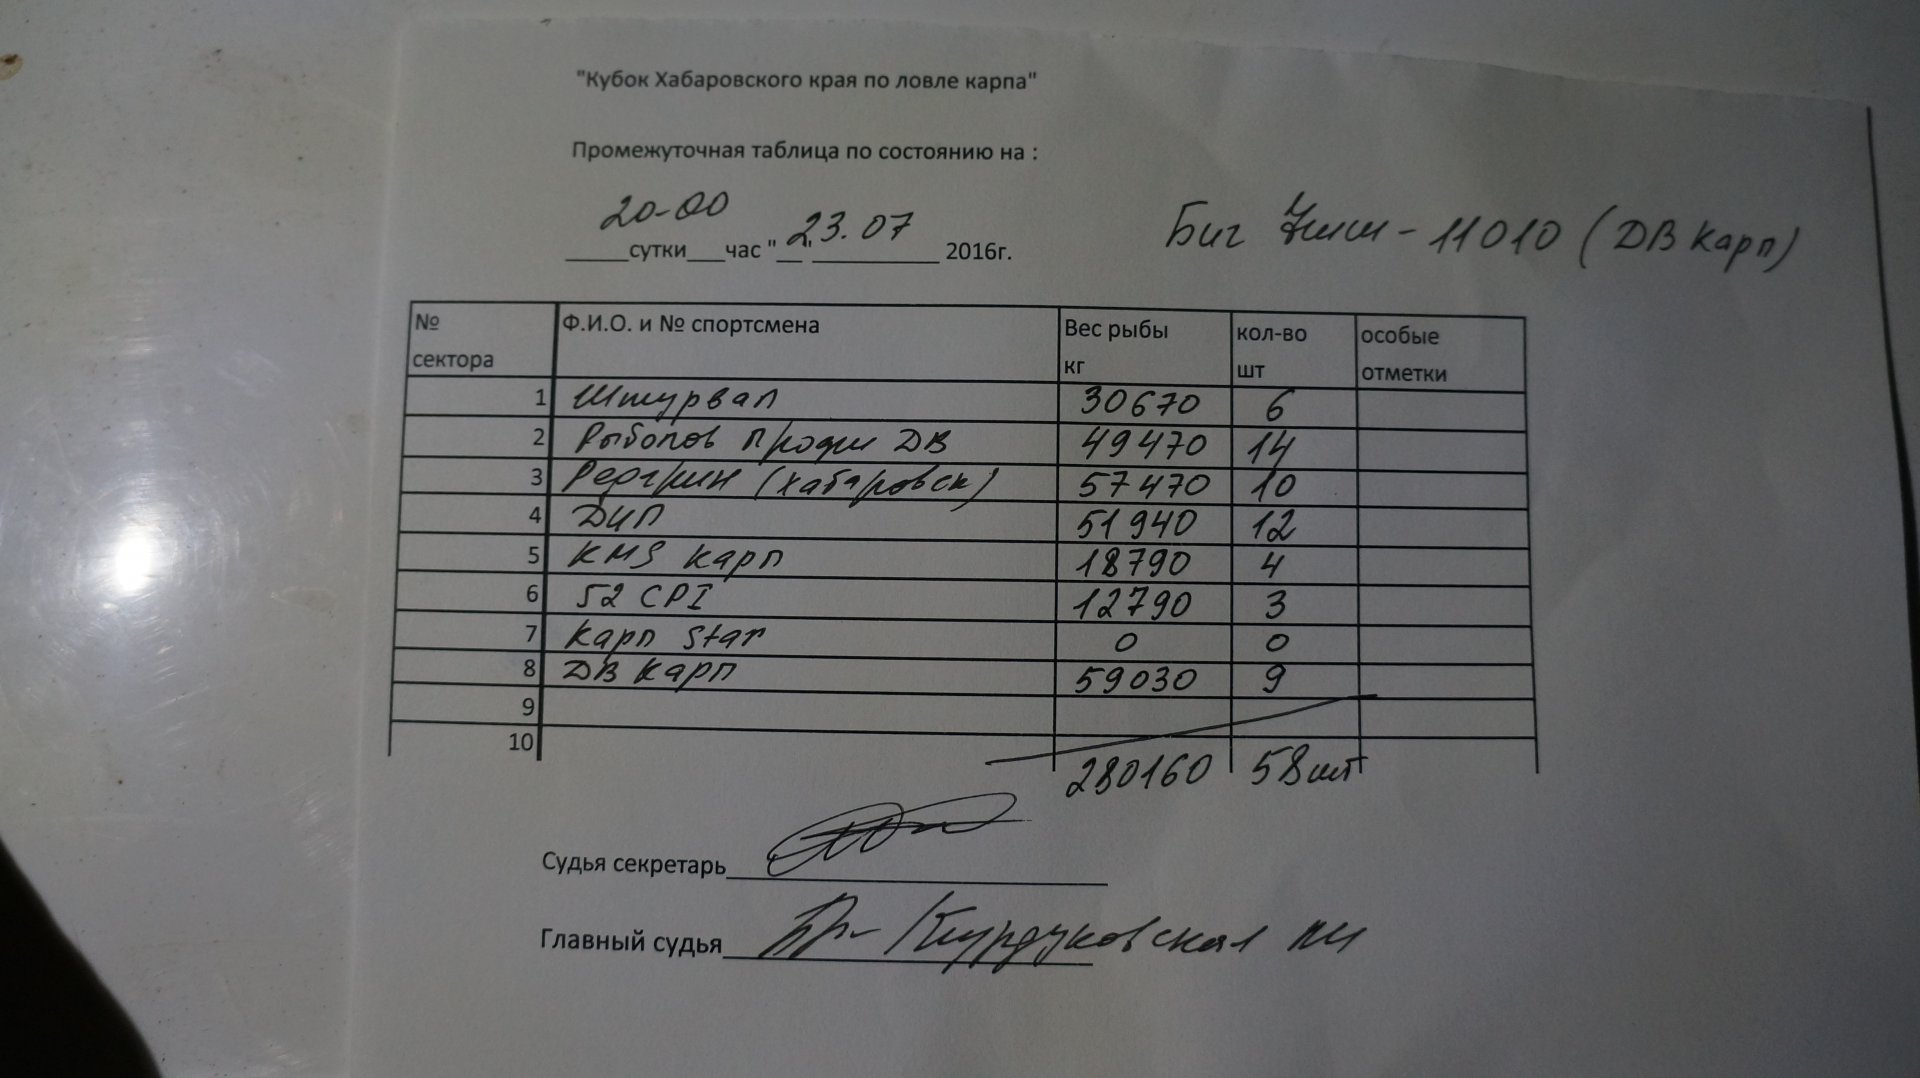 "Кубок Хабаровского края по ловле карпа"
Промежуточная таблица по состоянию на :
20-00 23.07
_____сутки___час "__"__________ 2016г.
Биг Фиш - 11010 (ДВ Карп)
№ сектора Ф.И.О. и № спортсмена Вес рыбы кг кол-во шт особые отметки
1 Штурвал 30670 6
2 Рыболов Профи ДВ 49470 14
3 Редгрин (Хабаровск) 57470 10
4 ДИП 51940 12
5 KMS Карп 18790 4
6 52 CPI 12790 3
7 Карп Star 0 0
8 ДВ Карп 59030 9
9
10
280160 58 шт
Судья секретарь
Главный судья